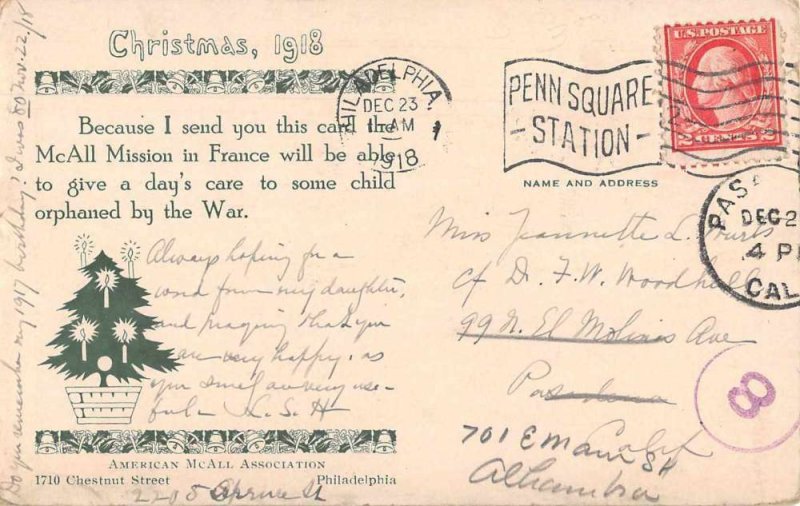 Christmas, 1918
Because I send you this card the
McAll Mission in France will be able
to give a day's care to some child
orphaned by the War.
Always hoping for a
word from my daughter,
and praying that you
are very happy. as
you surely are very use-
ful - L. S. H
AMERICAN MCALL ASSOCIATION
1710 Chestnut Street Philadelphia
2205 Spruce St
Do you remember my 1917 birthday? I was 80 Nov. 22/18
PHILADELPHIA,
DEC 23
AM
1918
PENN SQUARE
- STATION -
U.S. POSTAGE
2 CENTS 2
NAME AND ADDRESS
Miss Jeannette L.
c/o D. F. W. Woodhull
99 N. El Molino Ave
Pasadena
Calif
701 E Main St
Alhambra
PAS
DEC 2
4 P
CAL
8